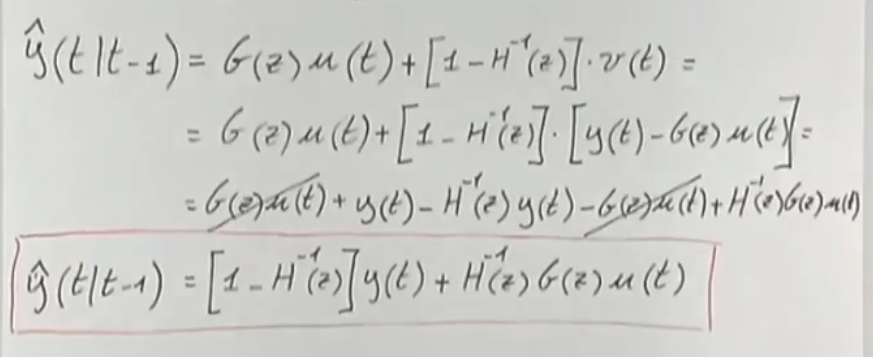 ŷ(t|t-1) = G(z) u(t) + [1 - H⁻¹(z)] · v(t) =
= G(z) u(t) + [1 - H⁻¹(z)] · [y(t) - G(z) u(t)] =
= G(z) u(t) + y(t) - H⁻¹(z) y(t) - G(z) u(t) + H⁻¹(z) G(z) u(t)
ŷ(t|t-1) = [1 - H⁻¹(z)] y(t) + H⁻¹(z) G(z) u(t)